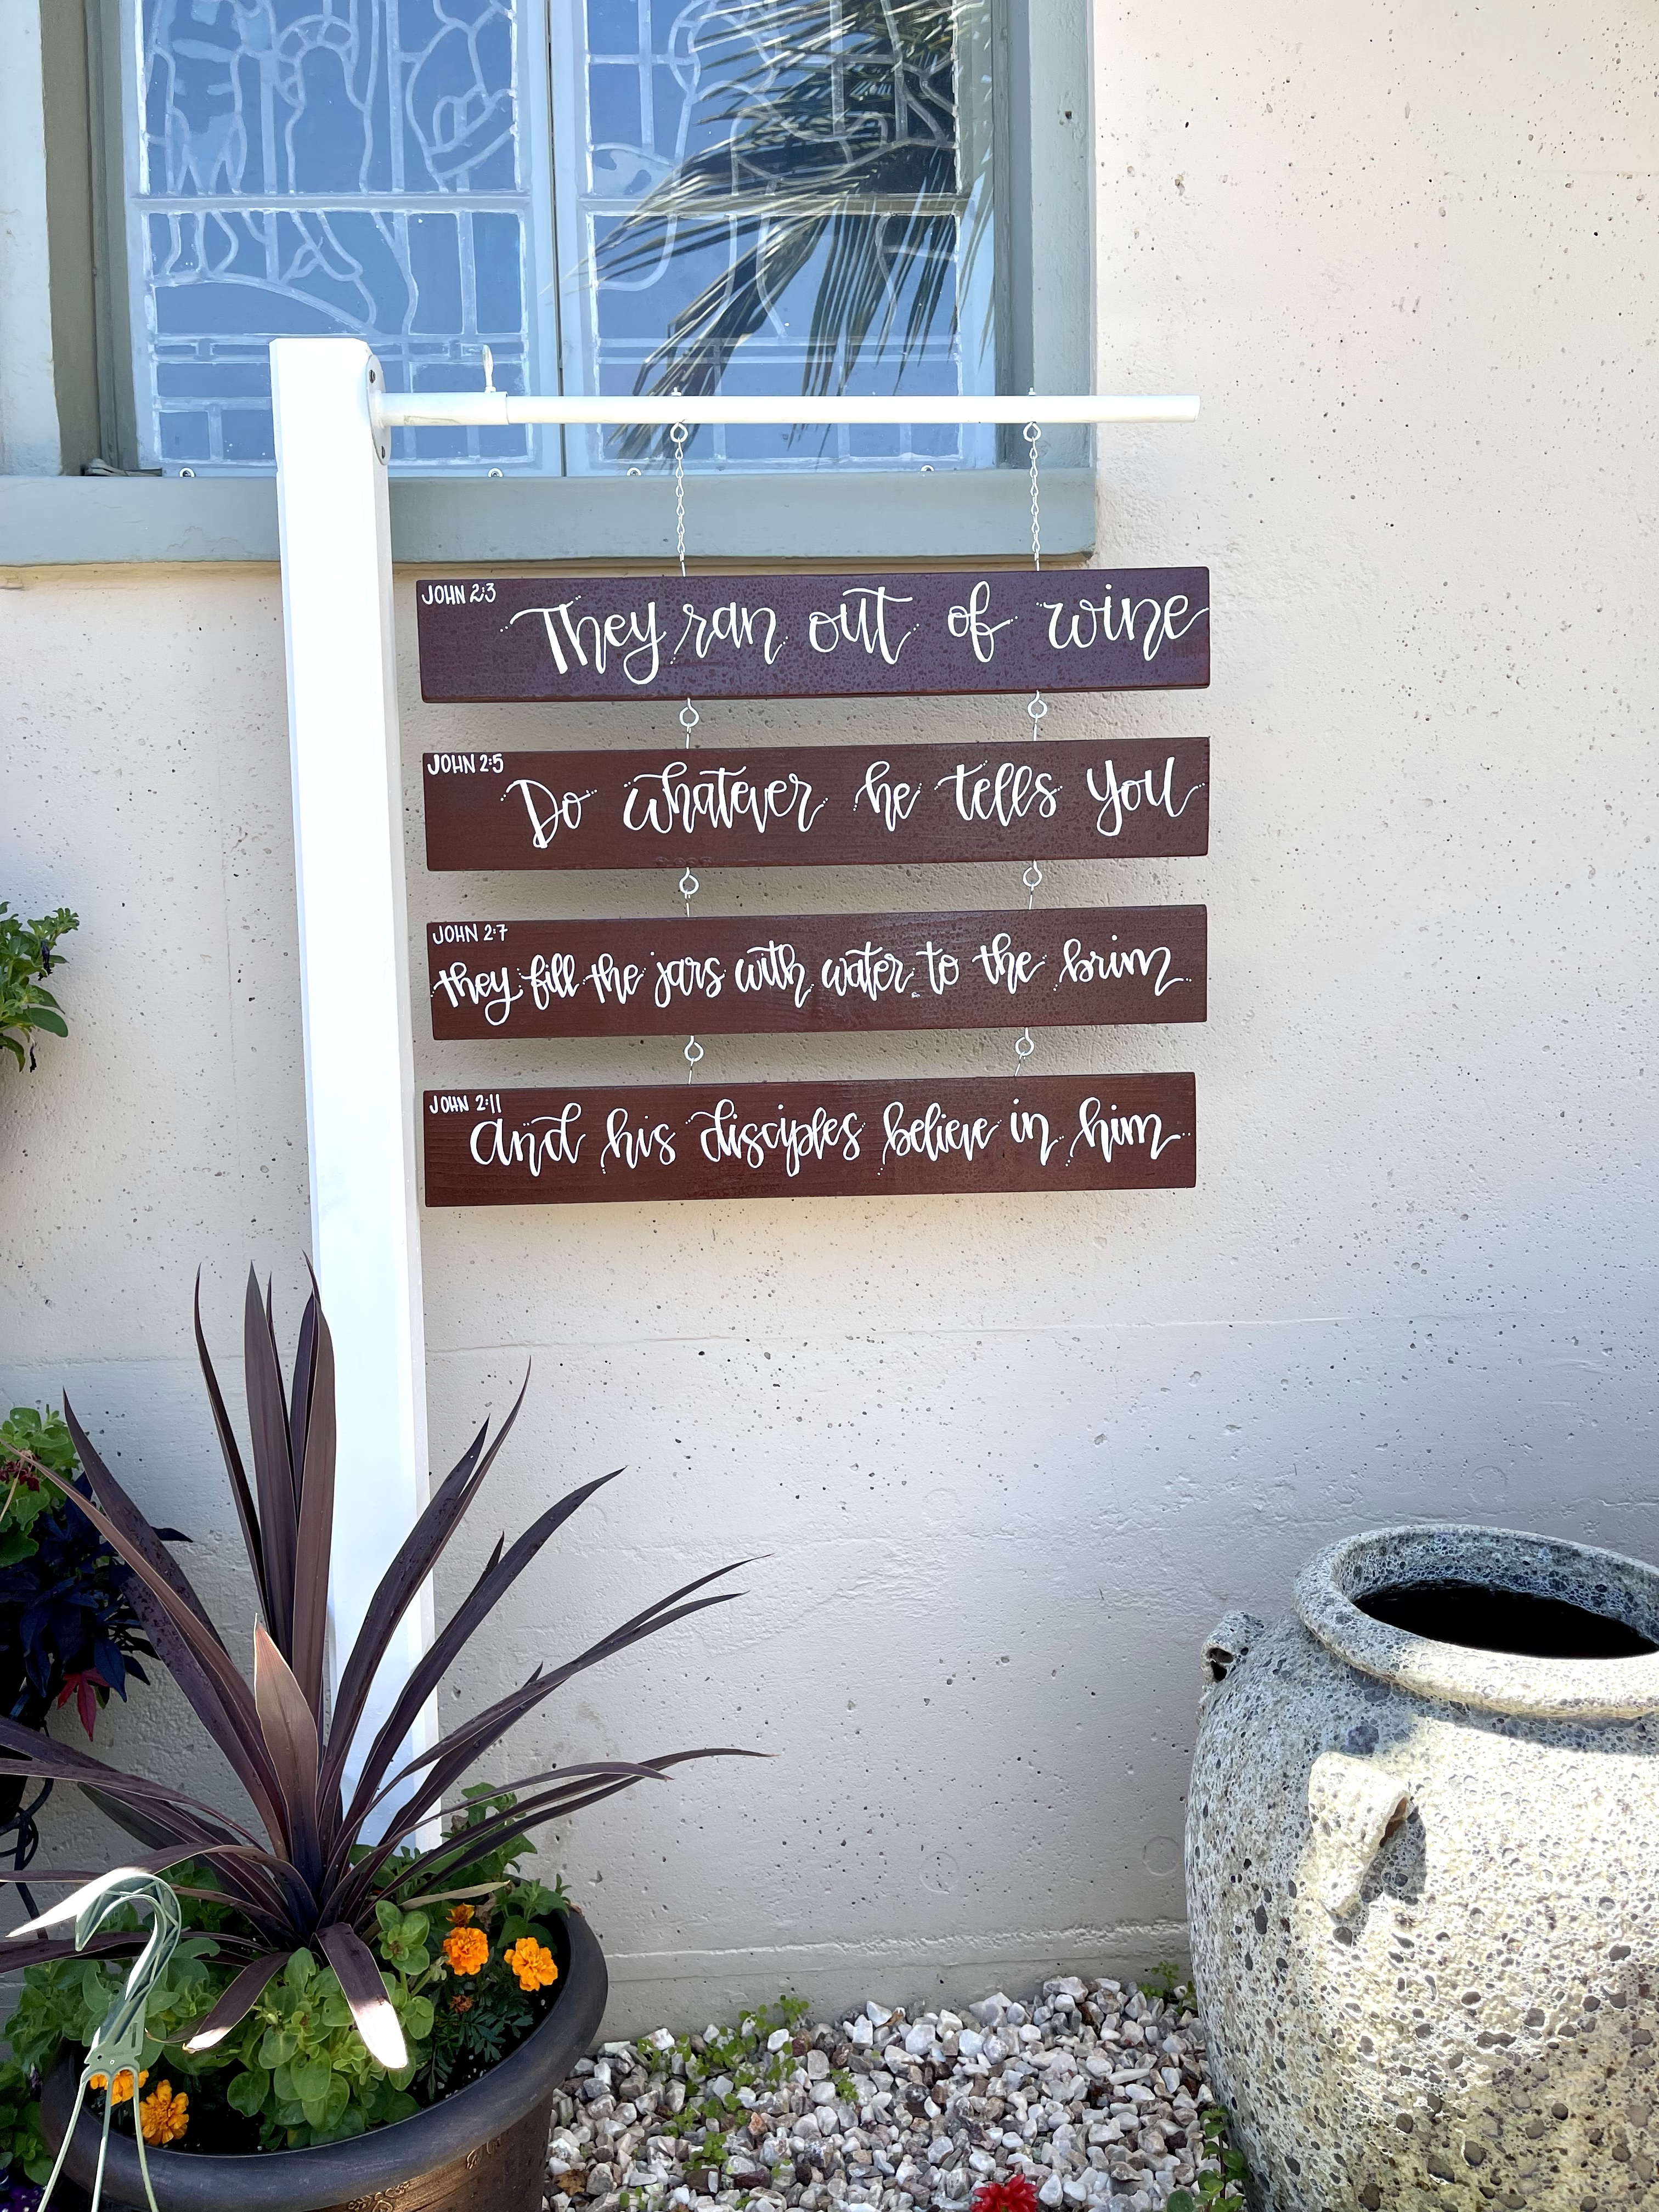 JOHN 2:3
They ran out of wine
JOHN 2:5
Do whatever he tells you
JOHN 2:7
they fill the jars with water to the brim
JOHN 2:11
and his disciples believe in him